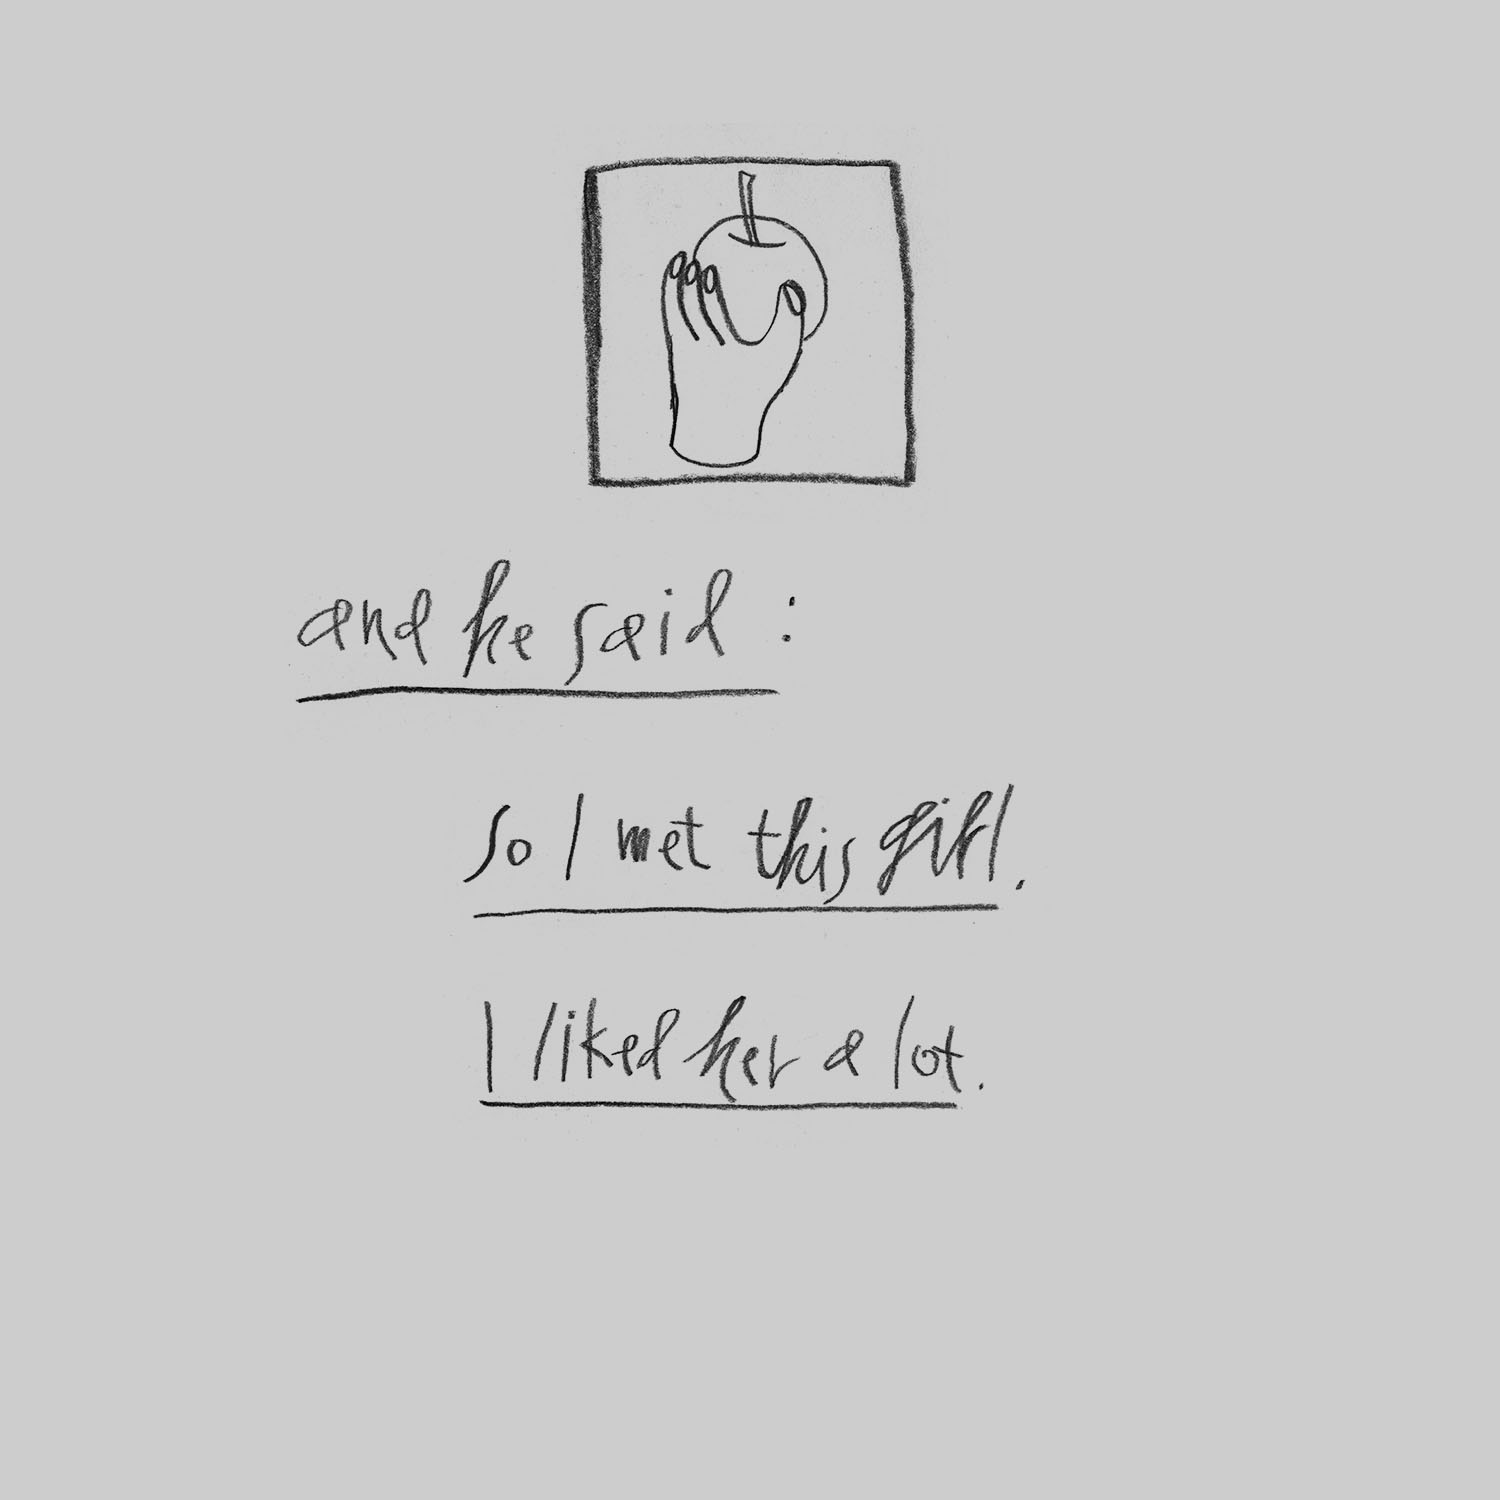 and he said :
so I met this girl.
I liked her a lot.